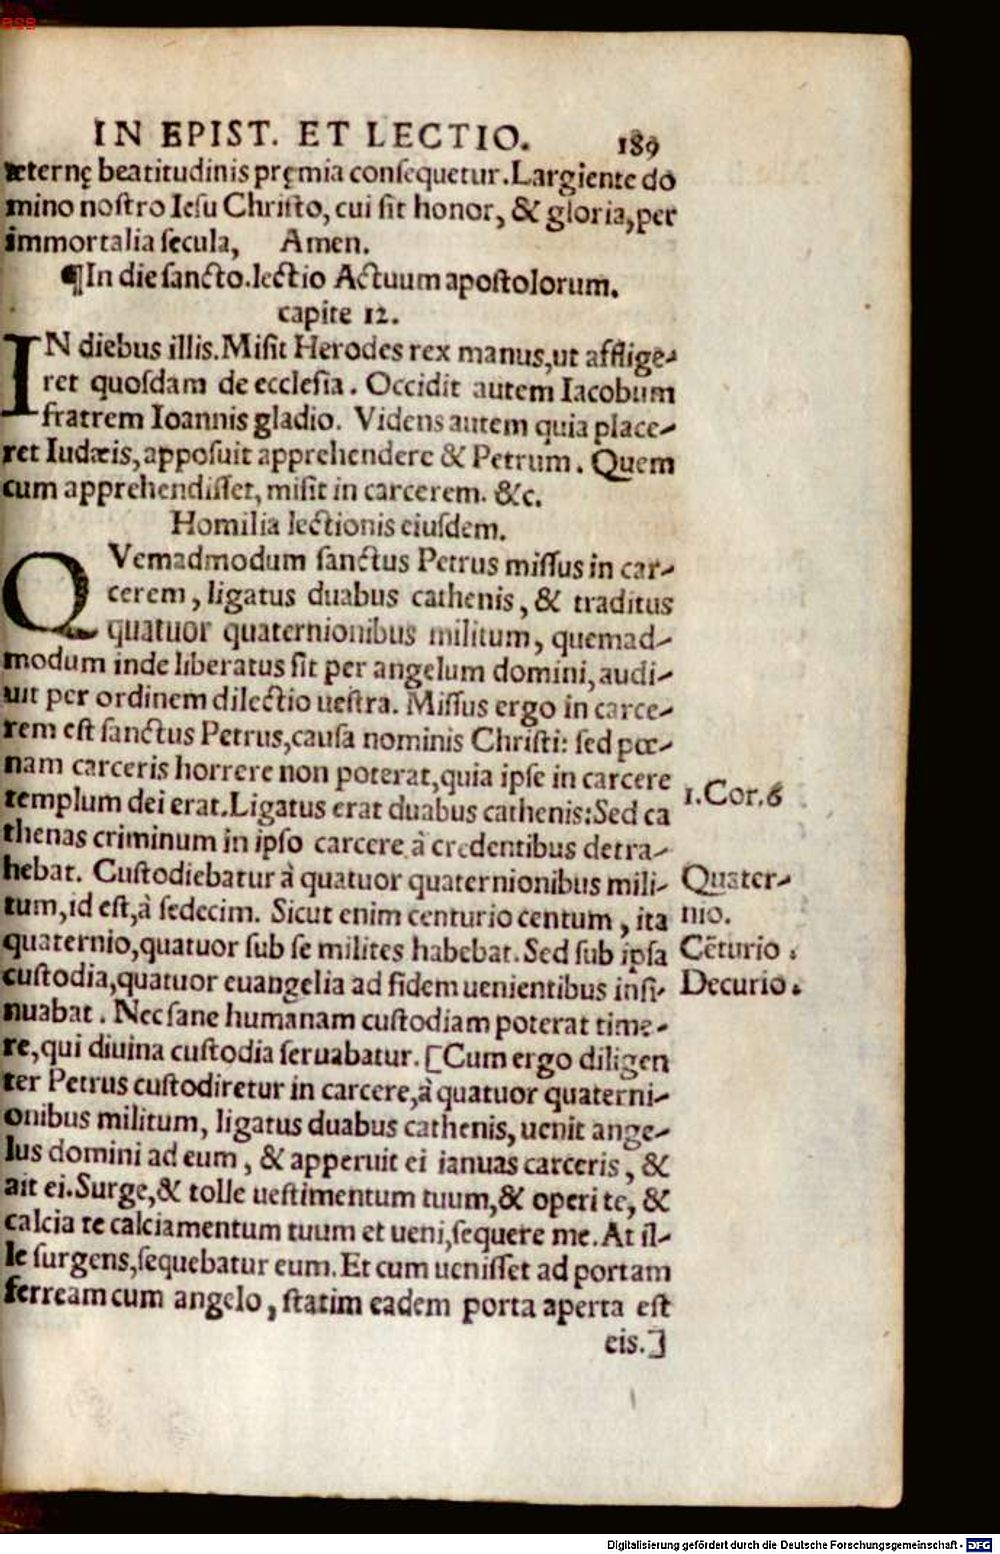 BSB
IN EPIST. ET LECTIO. 189
æternę beatitudinis pręmia consequetur. Largiente do
mino nostro Iesu Christo, cui sit honor, & gloria, per
immortalia secula, Amen.
¶In die sancto. lectio Actuum apostolorum.
capite 12.
IN diebus illis. Misit Herodes rex manus, ut afflige-
ret quosdam de ecclesia. Occidit autem Iacobum
fratrem Ioannis gladio. Videns autem quia place-
ret Iudæis, apposuit apprehendere & Petrum. Quem
cum apprehendisset, misit in carcerem. &c.
Homilia lectionis eiusdem.
QVemadmodum sanctus Petrus missus in car-
cerem, ligatus duabus cathenis, & traditus
quatuor quaternionibus militum, quemad-
modum inde liberatus sit per angelum domini, audi-
uit per ordinem dilectio uestra. Missus ergo in carce-
rem est sanctus Petrus, causa nominis Christi: sed pœ-
nam carceris horrere non poterat, quia ipse in carcere
templum dei erat. Ligatus erat duabus cathenis: Sed ca
1. Cor. 6
thenas criminum in ipso carcere à credentibus detra-
hebat. Custodiebatur à quatuor quaternionibus mili-
Quater-
tum, id est, à sedecim. Sicut enim centurio centum, ita
nio.
quaternio, quatuor sub se milites habebat. Sed sub ipsa
Cēturio.
custodia, quatuor euangelia ad fidem uenientibus insi-
Decurio.
nuabat. Nec sane humanam custodiam poterat time-
re, qui diuina custodia seruabatur. [Cum ergo diligen
ter Petrus custodiretur in carcere, à quatuor quaterni-
onibus militum, ligatus duabus cathenis, uenit ange-
lus domini ad eum, & apperuit ei ianuas carceris, &
ait ei. Surge, & tolle uestimentum tuum, & operi te, &
calcia te calciamentum tuum et ueni, sequere me. At il-
le surgens, sequebatur eum. Et cum uenisset ad portam
ferream cum angelo, statim eadem porta aperta est
eis.]
Digitalisierung gefördert durch die Deutsche Forschungsgemeinschaft - DFG